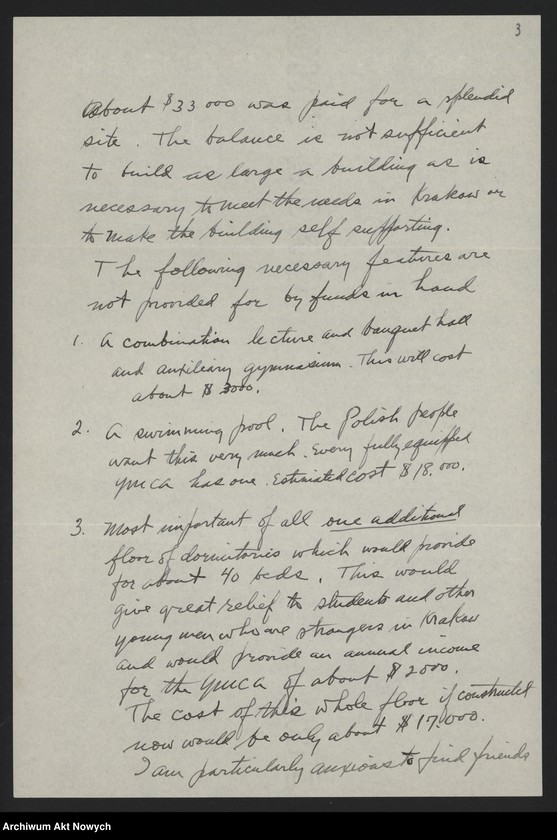 3
About $33000 was paid for a splendid
site. The balance is not sufficient
to build as large a building as is
necessary to meet the needs in Krakow or
to make the building self supporting.
The following necessary features are
not provided for by funds in hand
1. A combination lecture and banquet hall
and auxiliary gymnasium. This will cost
about $3000.
2. A swimming pool. The Polish people
want this very much. Every fully equipped
YMCA has one. Estimated cost $18.000.
3. Most important of all one additional
floor of dormitories which would provide
for about 40 beds. This would
give great relief to students and other
young men who are strangers in Krakow
and would provide an annual income
for the YMCA of about $2000.
The cost of this whole floor if constructed
now would be only about $17.000.
I am particularly anxious to find friends
Archiwum Akt Nowych